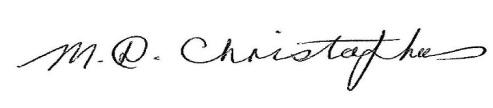 M. D. Christopher